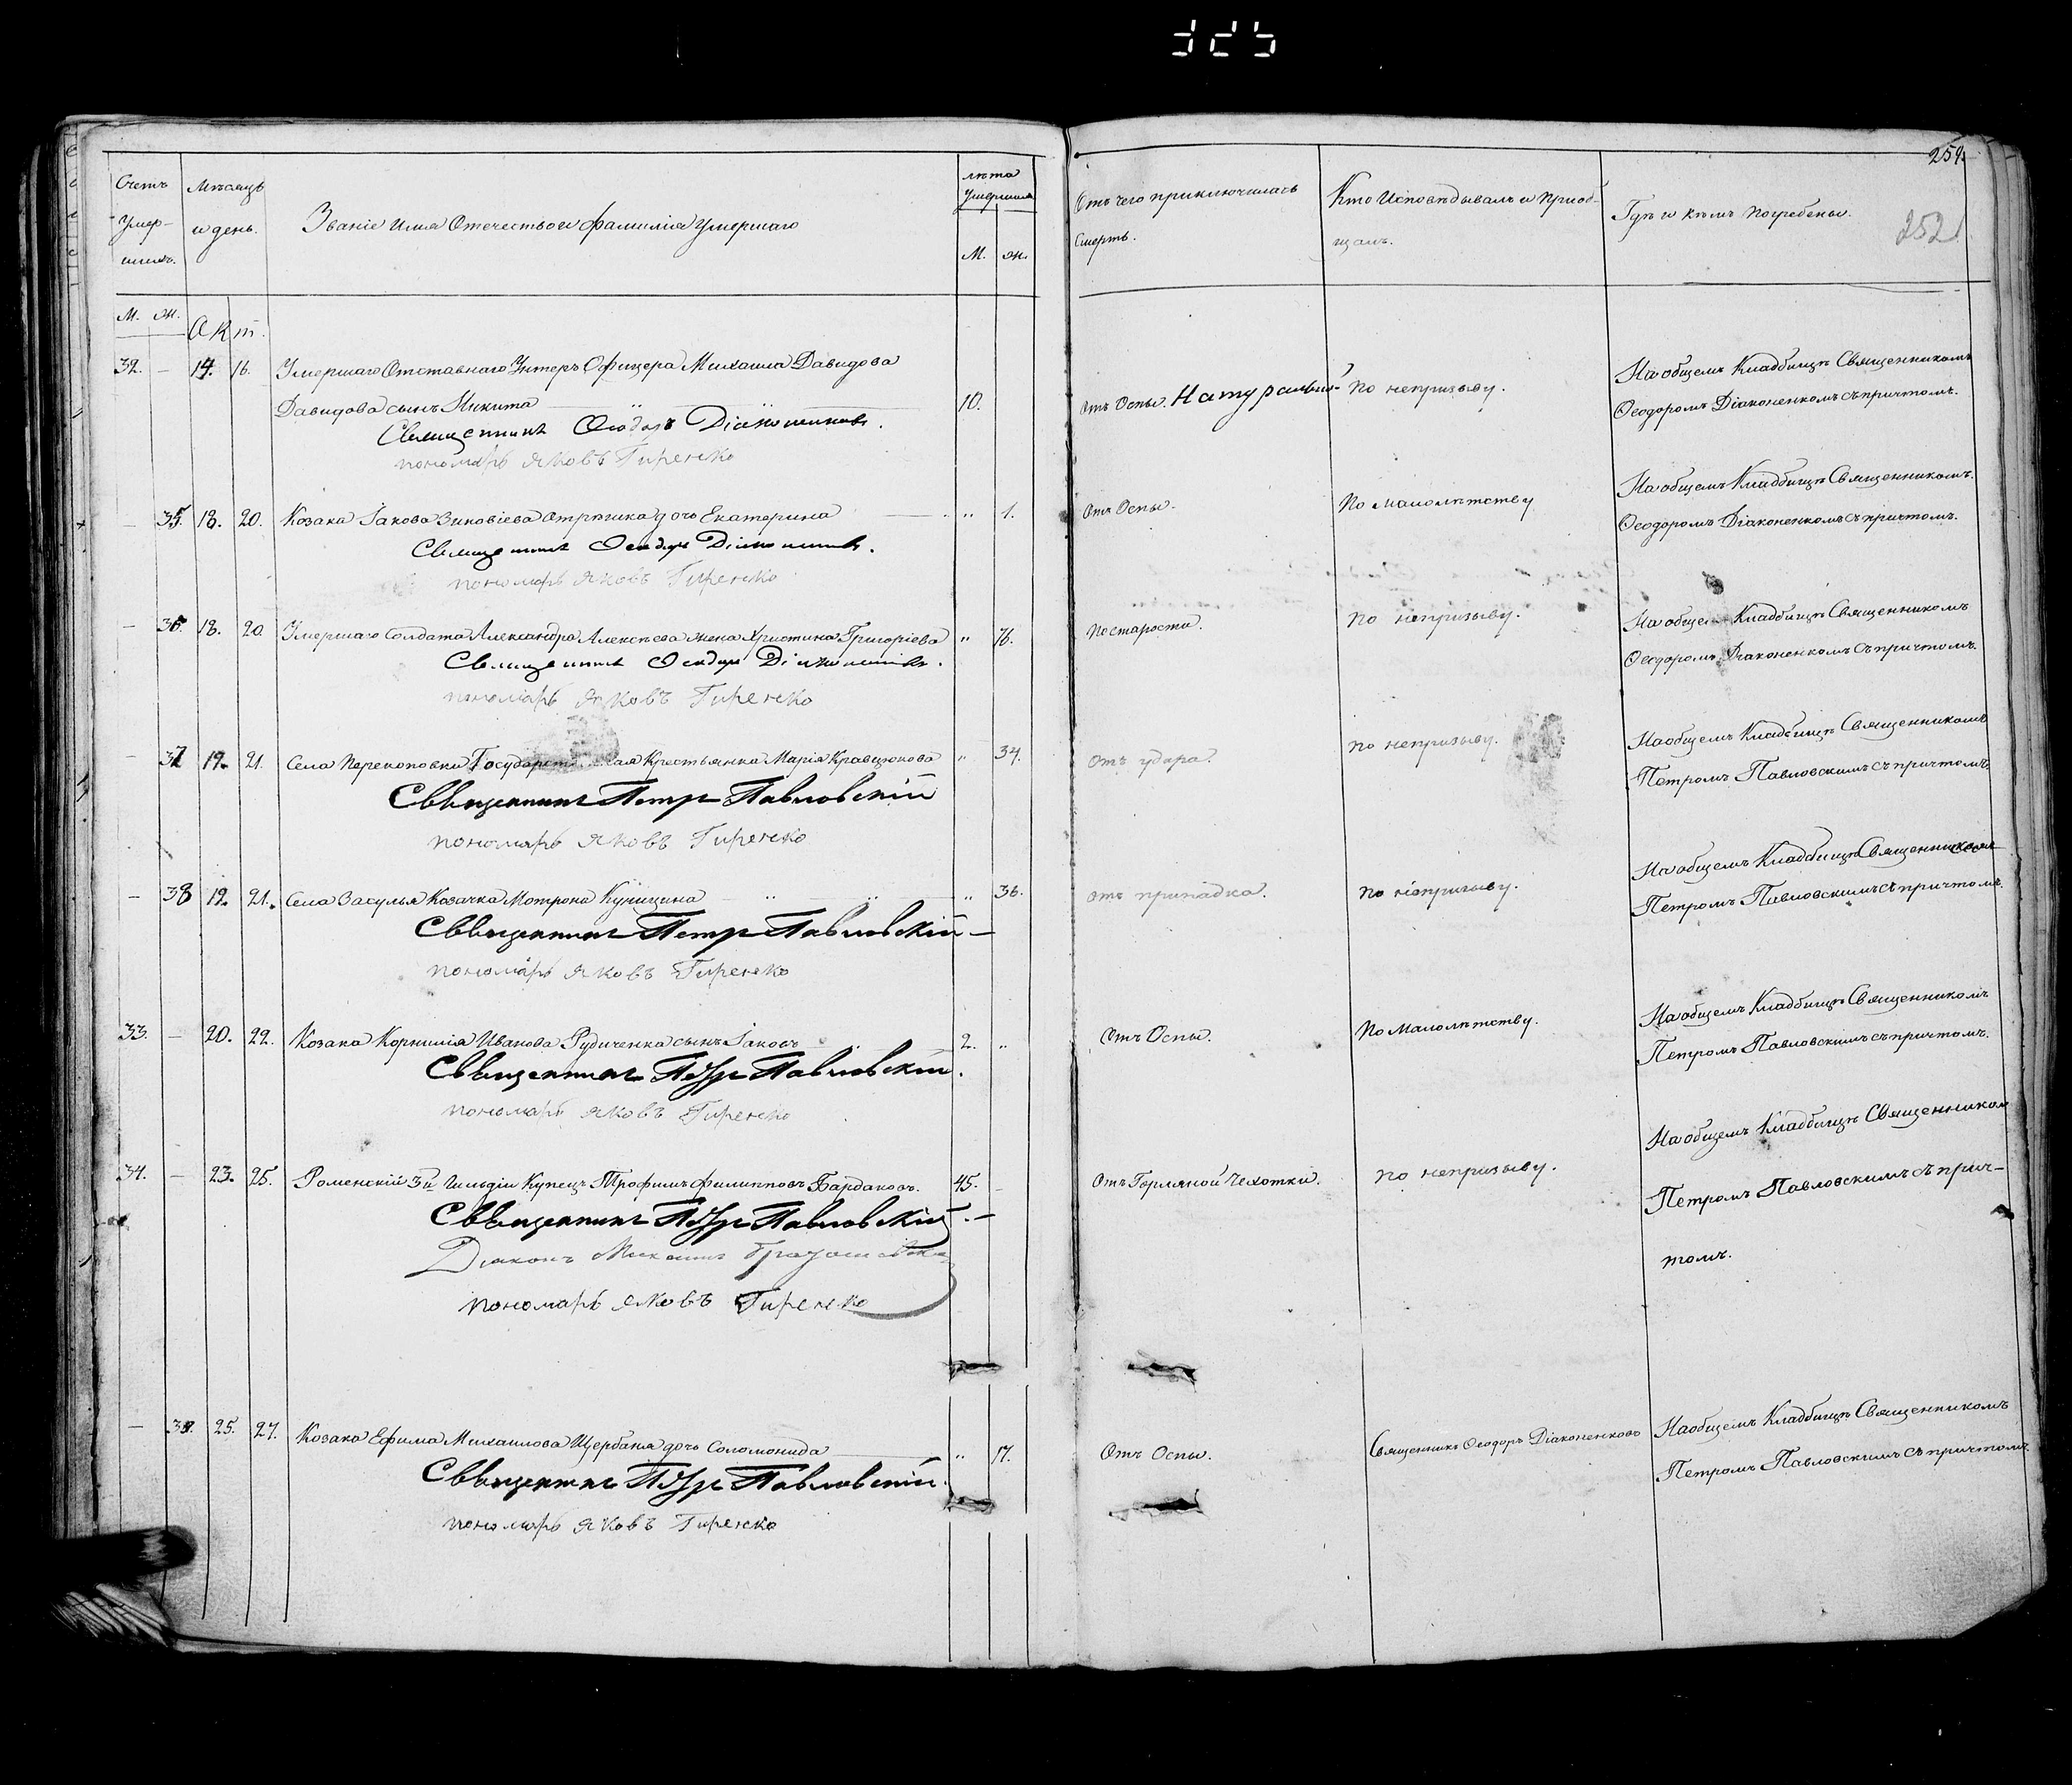 325
259.
252
Счетъ умер-шихъ.
Мѣсяцъ и день.
Званіе имя Отечество и фамилія умершаго
лѣта Умершихъ
М. Ж.
Отъ чего приключилась Смерть.
Кто Исповѣдывалъ и приоб-щалъ.
Гдѣ и кѣмъ погребены.
М. Ж. Окт.
32. — 14. 16. Умершаго Отставнаго Унтеръ Офицера Михаила Давидова
Давидова сынъ Никита 10.
Отъ Оспы. Натуральной
По непризыву.
На общемъ Кладбищѣ Священникомъ
Ѳеодоромъ Діаконенкомъ съ причтомъ.
Священникъ Ѳеодоръ Діаконенковъ.
пономарь Яковъ Гиренко
— 35. 18. 20. Козака Іакова Зиновіева Отрѣшка дочь Екатерина „ 1.
Отъ Оспы.
По Малолѣтству
На общемъ Кладбищѣ Священникомъ.
Ѳеодоромъ Діаконенкомъ съ причтомъ.
Священникъ Ѳеодоръ Діаконенковъ.
пономарь Яковъ Гиренко
— 36. 18. 20. Умершаго Солдата Александра Алексѣева жена Христина Григоріева „ 76.
По старости.
По непризыву.
На общемъ Кладбищѣ Священникомъ
Ѳеодоромъ Діаконенкомъ съ причтомъ.
Священникъ Ѳеодоръ Діаконенковъ.
пономарь Яковъ Гиренко
— 37 19. 21. Села Перекоповки Государственная Крестьянка Марія Кравцюкова „ 34.
Отъ удара.
По непризыву.
На общемъ Кладбищѣ Священникомъ
Петромъ Павловскимъ съ причтомъ.
Священникъ Петръ Павловскій
пономарь Яковъ Гиренко
— 38 19. 21. Села Засулья Казачка Мотрона Куницина „ 36.
Отъ припадка.
По непризыву.
На общемъ Кладбищѣ Священникомъ
Петромъ Павловскимъ съ причтомъ.
Священникъ Петръ Павловскій
пономарь Яковъ Гиренко
33. — 20. 22. Козака Корнилія Иванова Рудиченка сынъ Іаковъ 2. „
Отъ Оспы.
По Малолѣтству.
На общемъ Кладбищѣ Священникомъ
Петромъ Павловскимъ съ причтомъ.
Священникъ Петръ Павловскій.
пономарь Яковъ Гиренко
34. — 23. 25. Роменскій 3й Гильдіи Купецъ Трофимъ Филипповъ Бардаковъ. 45. -
Отъ Горляной Чехотки.
По непризыву.
На общемъ Кладбищѣ Священником
Петромъ Павловскимъ съ прич-
томъ.
Священникъ Петръ Павловскій.
Діаконъ Михаилъ
пономарь Яковъ Гиренко
— 39. 25. 27. Козака Ефима Михаилова Щербаня дочь Соломонида „ 17.
Отъ Оспы.
Священникъ Ѳеодоръ Діаконенковъ
На общемъ Кладбищѣ Священникомъ
Петромъ Павловскимъ съ причтомъ.
Священникъ Петръ Павловскій.
пономарь Яковъ Гиренко